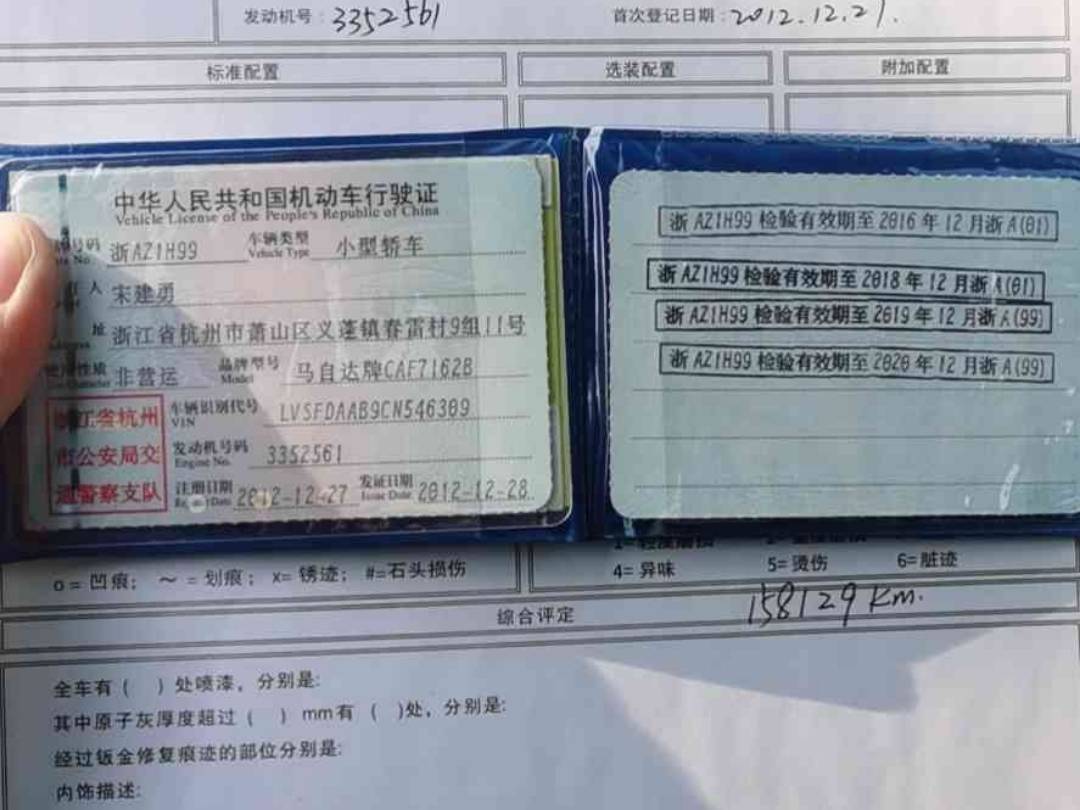 发动机号：3352561 首次登记日期：2012.12.27.
标准配置 选装配置 附加配置
中华人民共和国机动车行驶证
Vehicle License of the People's Republic of China
号码 浙AZ1H99 车辆类型 小型轿车
No. Vehicle Type
人 宋建勇
址 浙江省杭州市萧山区义蓬镇春雷村9组11号
性质 非营运 品牌型号 马自达牌CAF7162B
Character Model
浙江省杭州
市公安局交
通警察支队
车辆识别代号 LVSFDAAB9CN546389
VIN
发动机号码 3352561
Engine No.
注册日期 2012-12-27 发证日期 2012-12-28
Register Date Issue Date
浙AZ1H99 检验有效期至2016年12月浙A(01)
浙AZ1H99 检验有效期至2018年12月浙A(01)
浙AZ1H99 检验有效期至2019年12月浙A(99)
浙AZ1H99 检验有效期至2020年12月浙A(99)
o=凹痕； ～=划痕； x=锈迹； #=石头损伤
4=异味 5=烫伤 6=脏迹
综合评定 158129 Km.
全车有（ ）处喷漆，分别是:
其中原子灰厚度超过（ ）mm有（ ）处，分别是:
经过钣金修复痕迹的部位分别是:
内饰描述: